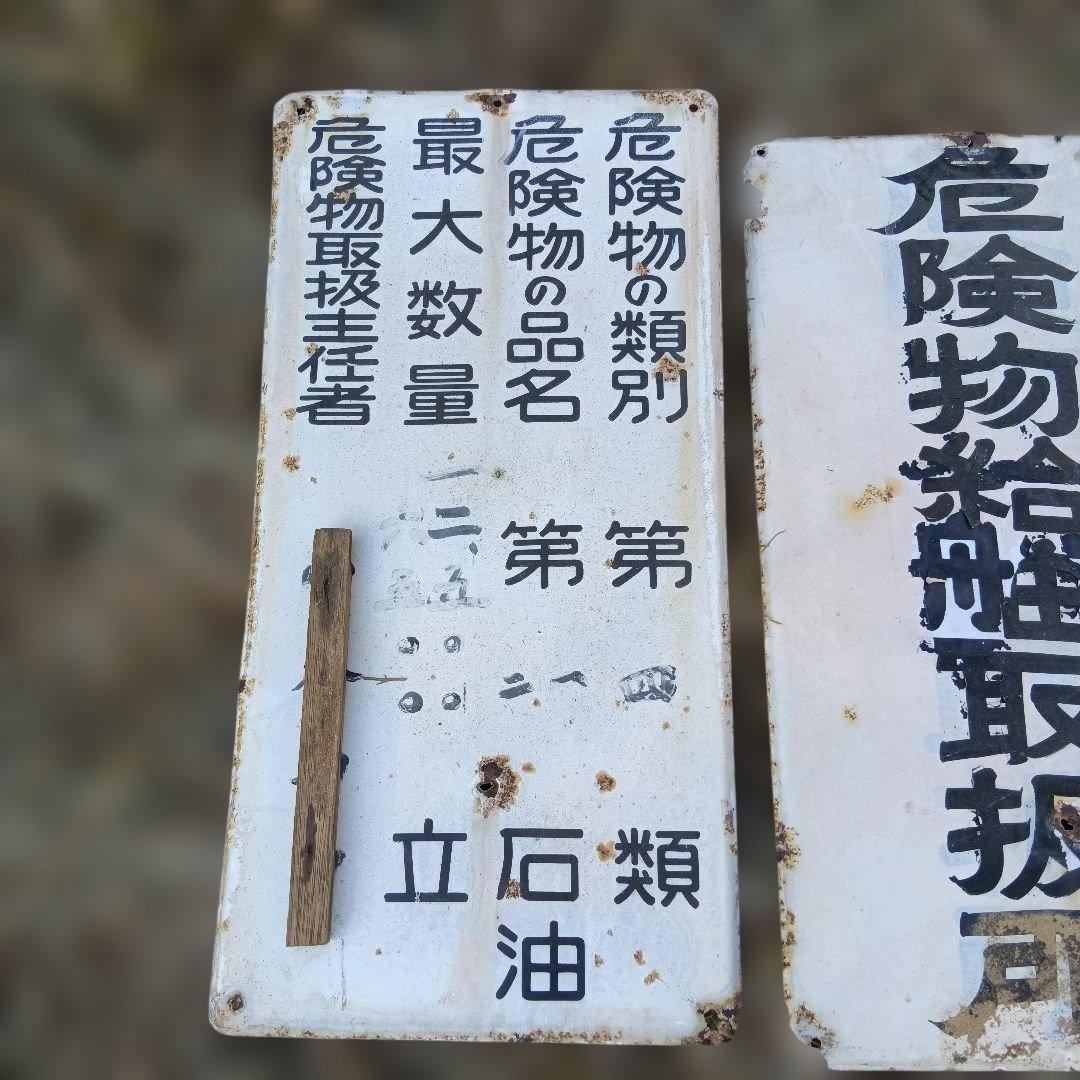 危険物の類別 第四類
危険物の品名 第一二石油
最大数量 一二、五〇〇立
危険物取扱主任者
危険物給油取扱所